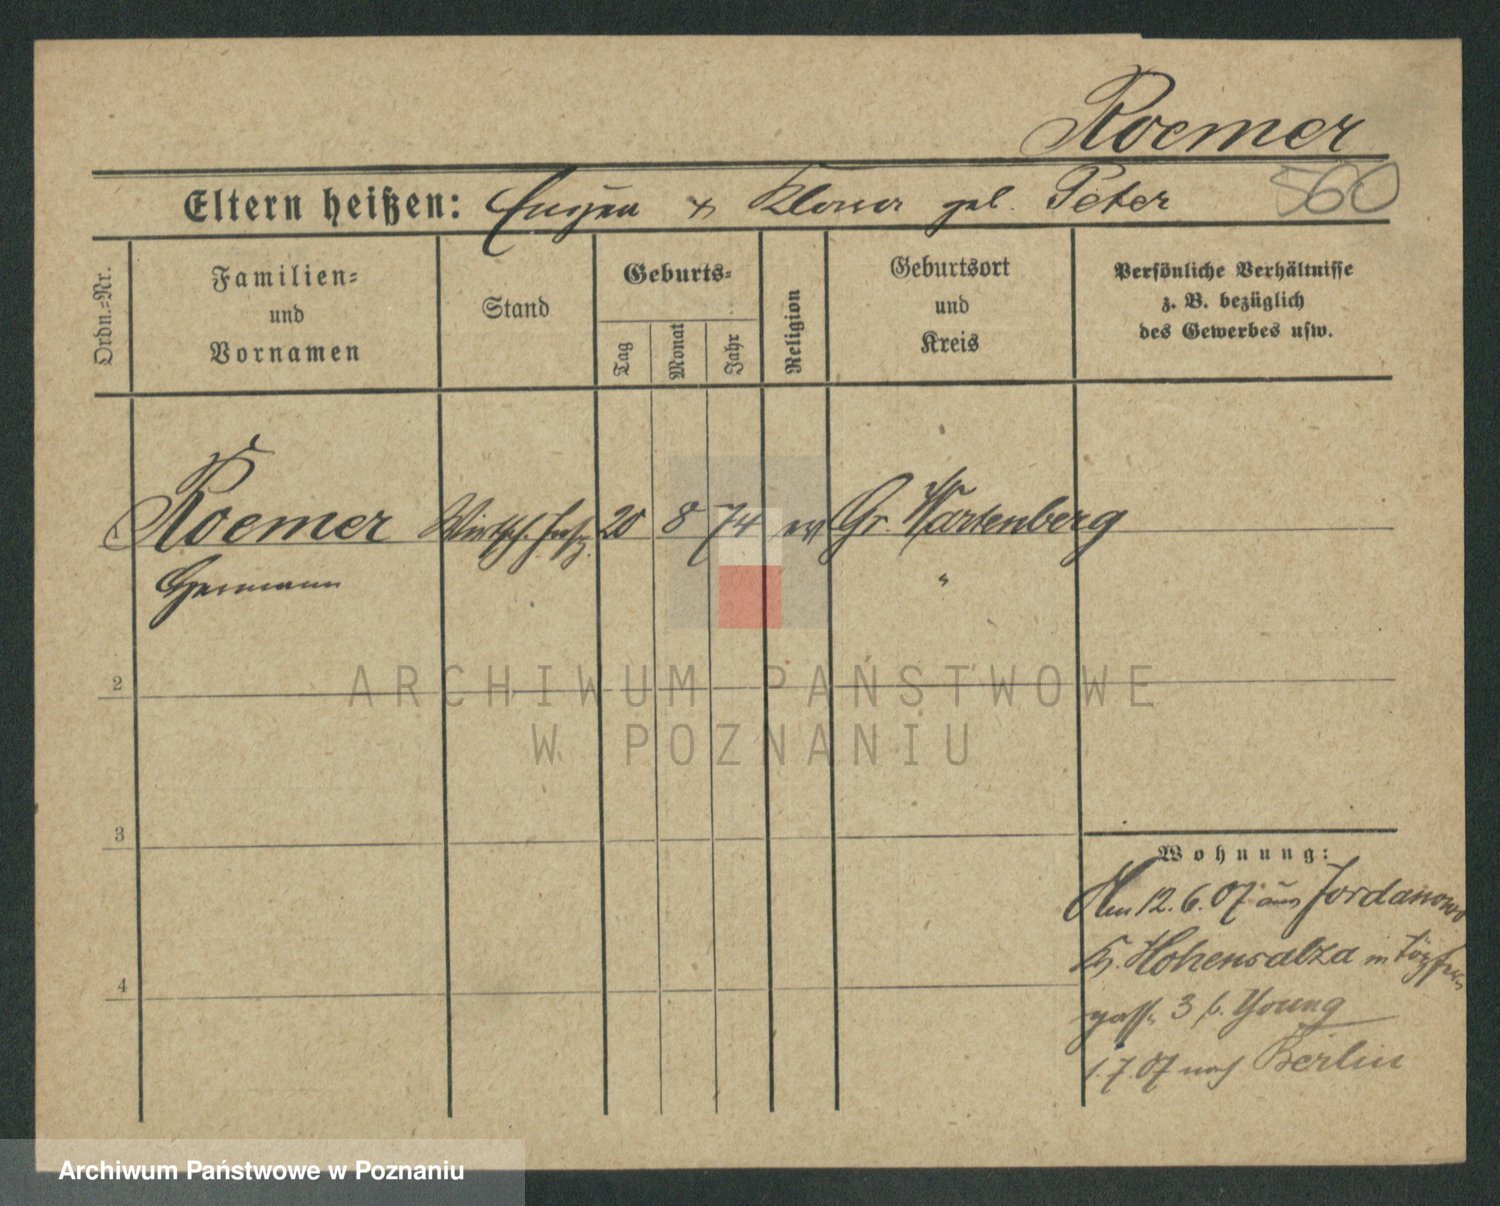 Roemer
560
Eltern heißen: Eugen + Klara geb. Peter
Ordn.-Nr.
Familien- und Vornamen
Stand
Geburts-
Tag
Monat
Jahr
Religion
Geburtsort und Kreis
Persönliche Verhältnisse z. B. bezüglich des Gewerbes usw.
1 Roemer Wirtsch. 20 8 74 ev Gr. Wartenberg
Hermann "
2
ARCHIWUM PAŃSTWOWE
W POZNANIU
3
Wohnung:
Am 12.6.07 aus Jordanowo
Kr. Hohensalza in Töpfer
gasse 3 b. Young
4
1.7.07 nach Berlin
Archiwum Państwowe w Poznaniu